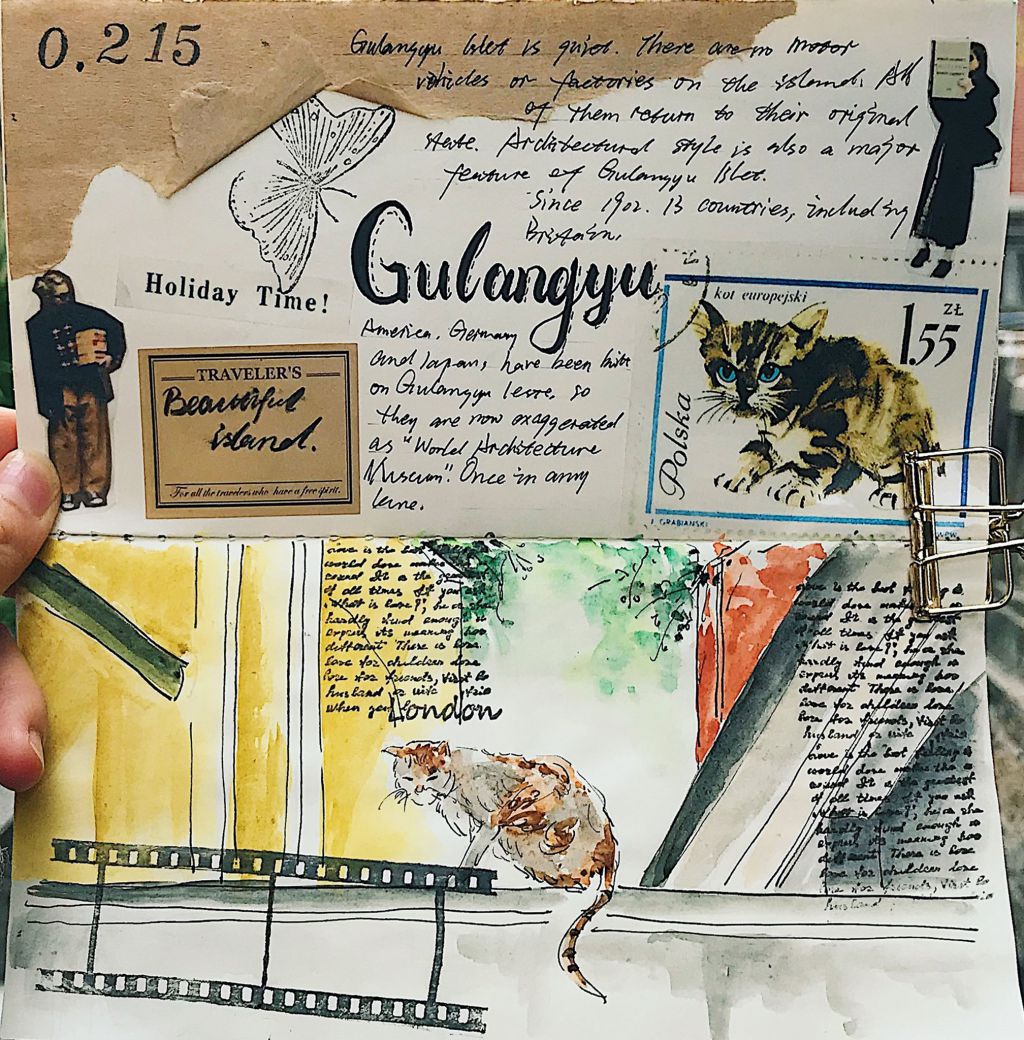 0.215
Gulangyu Islet is quiet. There are no motor
vehicles or factories on the island. All
of them return to their original
state. Architectural style is also a major
feature of Gulangyu Islet.
Since 1902. 13 countries, including
Britain,
Gulangyu
Holiday Time!
America, Germany
and Japan, have been
on Gulangyu so
they are now exaggerated
as "World Architecture
Museum". Once in
TRAVELER'S
Beautiful
island.
For all the travelers who have a free spirit.
kot europejski
1.55 ZŁ
Polska
J. GRABIAŃSKI
love is the best
world love makes
round It is the
of all times If you ask
"What is love?", he or she
hardly find enough
express its meaning
different There is love
love for children love
love for friends,
husband or wife
When you
London
love is the
world love makes
round It is the
of all times. If you ask
"What is love?", he or she
hardly find enough
express its meaning
different There is love
love for children love
love for friends,
husband or wife
love is the best feeling
world love makes the
round It is the greatest
of all times If you ask
he or she
hardly find enough
express its meaning
different There is love
love for children love
love for friends,
husband